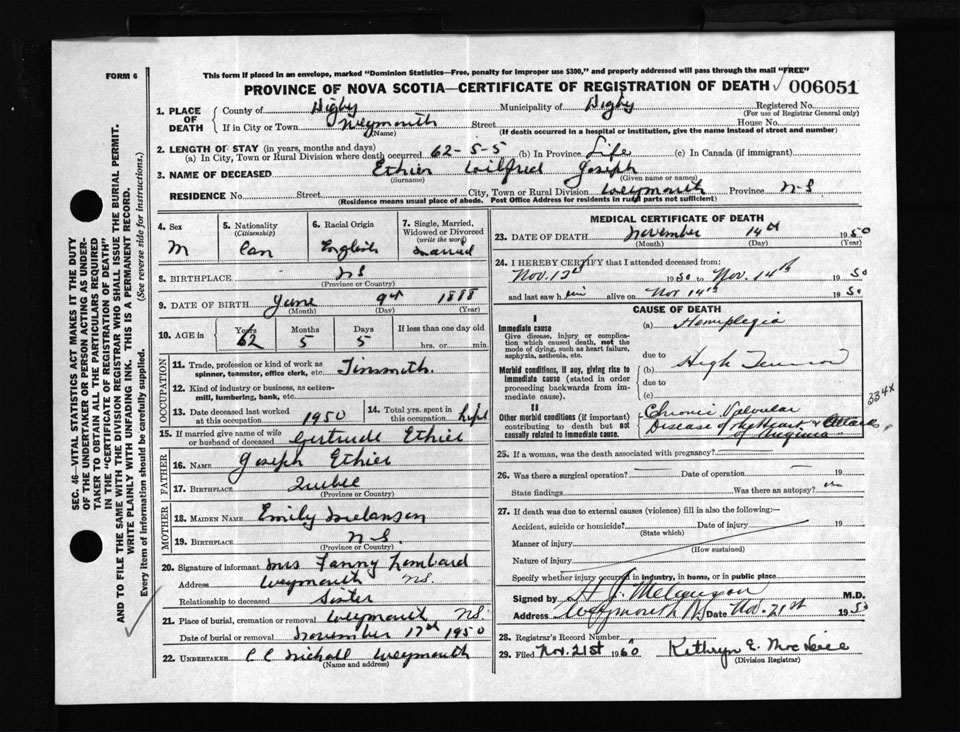 FORM 6
This form if placed in an envelope, marked "Dominion Statistics—Free, penalty for improper use $300," and properly addressed will pass through the mail "FREE"
PROVINCE OF NOVA SCOTIA—CERTIFICATE OF REGISTRATION OF DEATH 006051
1. PLACE OF DEATH
County of Digby Municipality of Digby Registered No.
(For use of Registrar General only)
If in City or Town Weymouth Street House No.
(Name) (If death occurred in a hospital or institution, give the name instead of street and number)
2. LENGTH OF STAY (in years, months and days)
(a) In City, Town or Rural Division where death occurred 62-5-5 (b) In Province Life (c) In Canada (if immigrant)
3. NAME OF DECEASED Ethier Wilfred Joseph
(Surname) (Given name or names)
RESIDENCE No. Street City, Town or Rural Division Weymouth Province N S
(Residence means usual place of abode. Post Office Address for residents in rural parts not sufficient)
4. Sex M
5. Nationality (Citizenship) Can
6. Racial Origin English
7. Single, Married, Widowed or Divorced (write the word) Married
8. BIRTHPLACE N S
(Province or Country)
9. DATE OF BIRTH June 9th 1888
(Month) (Day) (Year)
10. AGE in Years 62 Months 5 Days 5 If less than one day old hrs. or min.
OCCUPATION
11. Trade, profession or kind of work as spinner, teamster, office clerk, etc. Tinsmith.
12. Kind of industry or business, as cotton-mill, lumbering, bank, etc.
13. Date deceased last worked at this occupation 1950
14. Total yrs. spent in this occupation Life
15. If married give name of wife or husband of deceased Gertrude Ethier
FATHER
16. NAME Joseph Ethier
17. BIRTHPLACE Quebec
(Province or Country)
MOTHER
18. MAIDEN NAME Emily Melanson
19. BIRTHPLACE N S.
(Province or Country)
20. Signature of informant Mrs Fanny Lombard
Address Weymouth NS.
Relationship to deceased Sister
21. Place of burial, cremation or removal Weymouth NS.
Date of burial or removal November 17th 1950
22. UNDERTAKER C C Nichall Weymouth
(Name and address)
MEDICAL CERTIFICATE OF DEATH
23. DATE OF DEATH November 14th 1950
(Month) (Day) (Year)
24. I HEREBY CERTIFY that I attended deceased from:
Nov. 13th 1950 to Nov. 14th 1950
and last saw him alive on Nov 14th 1950
CAUSE OF DEATH
I
Immediate cause
Give disease, injury or complication which caused death, not the mode of dying, such as heart failure, asphyxia, asthenia, etc.
(a) Hemiplegia
due to
Morbid conditions, if any, giving rise to immediate cause (stated in order proceeding backwards from immediate cause).
(b) High Tension
due to
(c)
II
Other morbid conditions (if important) contributing to death but not causally related to immediate cause.
Chronic Valvular
Disease of the Heart & Attacks
of Angina
334x
25. If a woman, was the death associated with pregnancy?
26. Was there a surgical operation? Date of operation 19
State findings Was there an autopsy? no
27. If death was due to external causes (violence) fill in also the following:—
Accident, suicide or homicide? Date of injury 19
(State which)
Manner of injury
(How sustained)
Nature of injury
Specify whether injury occurred in industry, in home, or in public place
Signed by H. J. M.D.
Address Weymouth NS Date Nov. 21st 1950
28. Registrar's Record Number 6
29. Filed Nov. 21st 1950 Kathryn E. MacNeill
(Division Registrar)
SEC. 46—VITAL STATISTICS ACT MAKES IT THE DUTY
OF THE UNDERTAKER OR PERSON ACTING AS UNDER-
TAKER TO OBTAIN ALL THE PARTICULARS REQUIRED
IN THE "CERTIFICATE OF REGISTRATION OF DEATH"
AND TO FILE THE SAME WITH THE DIVISION REGISTRAR WHO SHALL ISSUE THE BURIAL PERMIT.
WRITE PLAINLY WITH UNFADING INK. THIS IS A PERMANENT RECORD.
Every item of information should be carefully supplied. (See reverse side for instructions.)